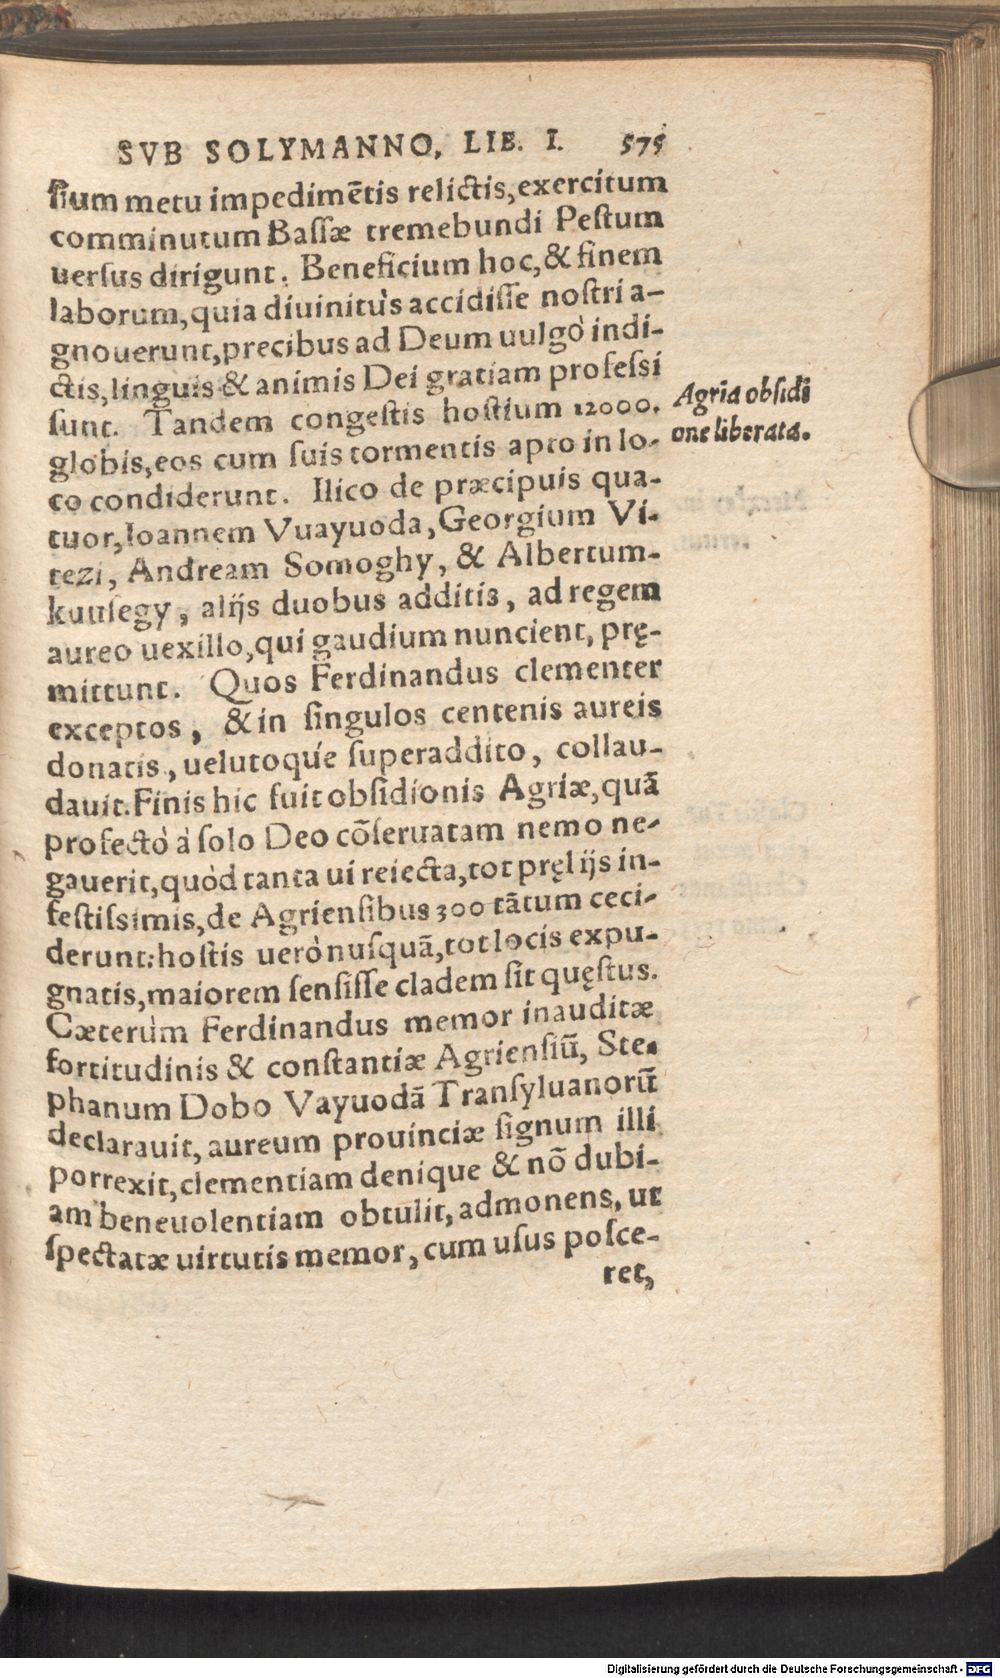 SVB SOLYMANNO, LIB. I. 575
ſium metu impedimẽtis relictis, exercitum
comminutum Baſſæ tremebundi Peſtum
uerſus dirigunt. Beneficium hoc, & finem
laborum, quia diuinitùs accidiſſe noſtri a-
gnouerunt, precibus ad Deum uulgò indi-
ctis, linguis & animis Dei gratiam profeſsi
ſunt. Tandem congeſtis hoſtium 12000.
globis, eos cum ſuis tormentis apto in lo-
co condiderunt. Ilico de præcipuis qua-
tuor, Ioannem Vuayuoda, Georgium Vi-
tezi, Andream Somoghy, & Albertum-
kuuſegy, alijs duobus additis, ad regem
aureo uexillo, qui gaudium nuncient, prę-
mittunt. Quos Ferdinandus clementer
exceptos, & in ſingulos centenis aureis
donatis, uelutoq́ue ſuperaddito, collau-
dauit. Finis hic fuit obſidionis Agriæ, quã
profectò à ſolo Deo cõſeruatam nemo ne-
gauerit, quòd tanta ui reiecta, tot pręlijs in-
feſtiſsimis, de Agrienſibus 300 tãtum ceci-
derunt: hoſtis uerò nuſquã, tot locis expu-
gnatis, maiorem ſenſiſſe cladem ſit quęſtus.
Cæterùm Ferdinandus memor inauditæ
fortitudinis & conſtantiæ Agrienſiũ, Ste-
phanum Dobo Vayuodã Tranſyluanorũ
declarauit, aureum prouinciæ ſignum illi
porrexit, clementiam denique & nõ dubi-
am beneuolentiam obtulit, admonens, ut
ſpectatæ uirtutis memor, cum uſus poſce-
ret,
Agria obſidi
one liberata.
Digitalisierung gefördert durch die Deutsche Forschungsgemeinschaft - DFG